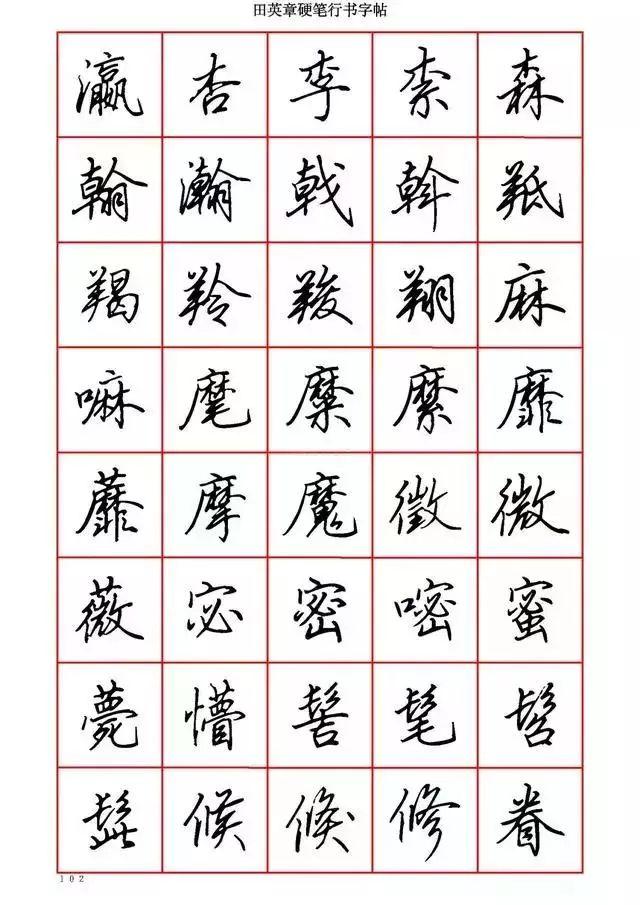 田英章硬笔行书字帖
瀛 杏 李 柰 森
翰 瀚 戟 斡 羝
羯 羚 羧 翔 麻
嘛 麾 糜 縻 靡
蘼 摩 魔 徵 微
薇 宓 密 嘧 蜜
薨 懵 髻 髦 髫
髭 候 倏 修 眷
102